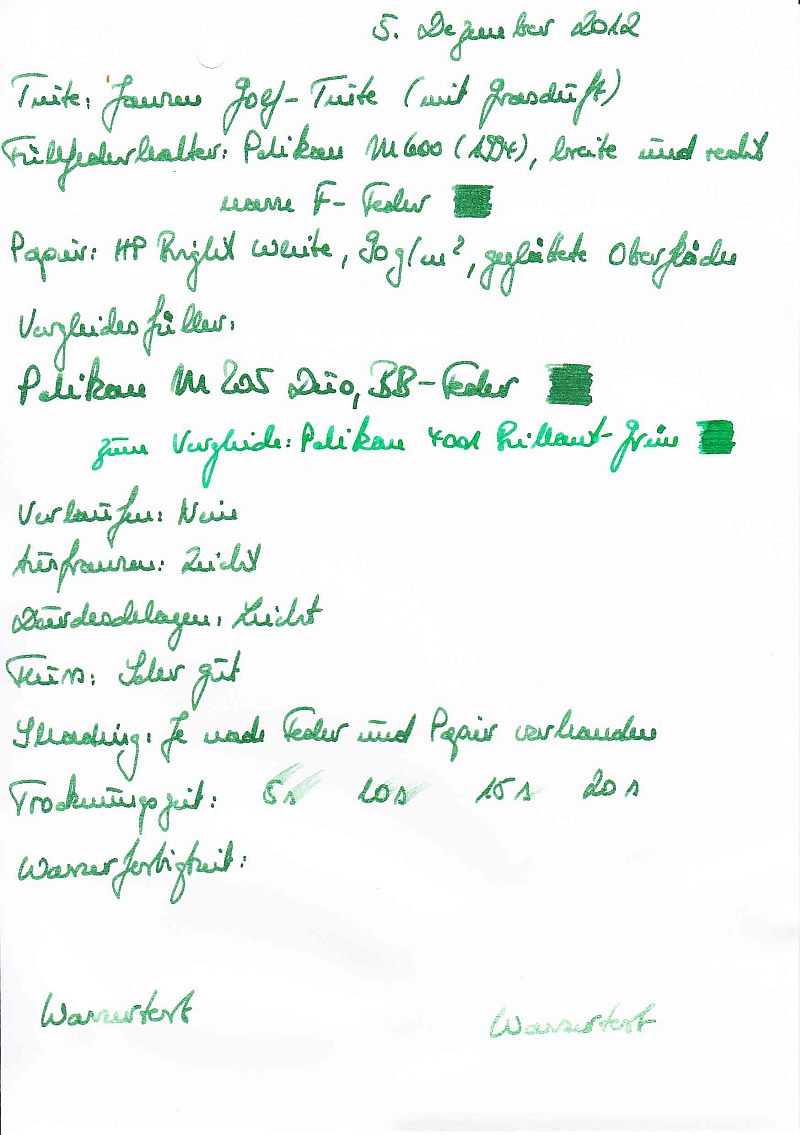 5. Dezember 2012
Tinte: Jansen Golf-Tinte (mit Grasduft)
Füllfederhalter: Pelikan M 600 (1994), breite und recht
nasse F-Feder
Papier: HP Bright White, 90g/m², geglättete Oberfläche
Vergleichsfüller:
Pelikan M 205 Duo, BB-Feder
zum Vergleich: Pelikan 4001 Brillant-Grün
Verlaufen: Nein
Ausfransen: Leicht
Durchschlagen: Leicht
Fluss: Sehr gut
Shading: Je nach Feder und Papier vorhanden
Trocknungszeit: 5s 10s 15s 20s
Wasserfestigkeit:
Wassertest Wassertest